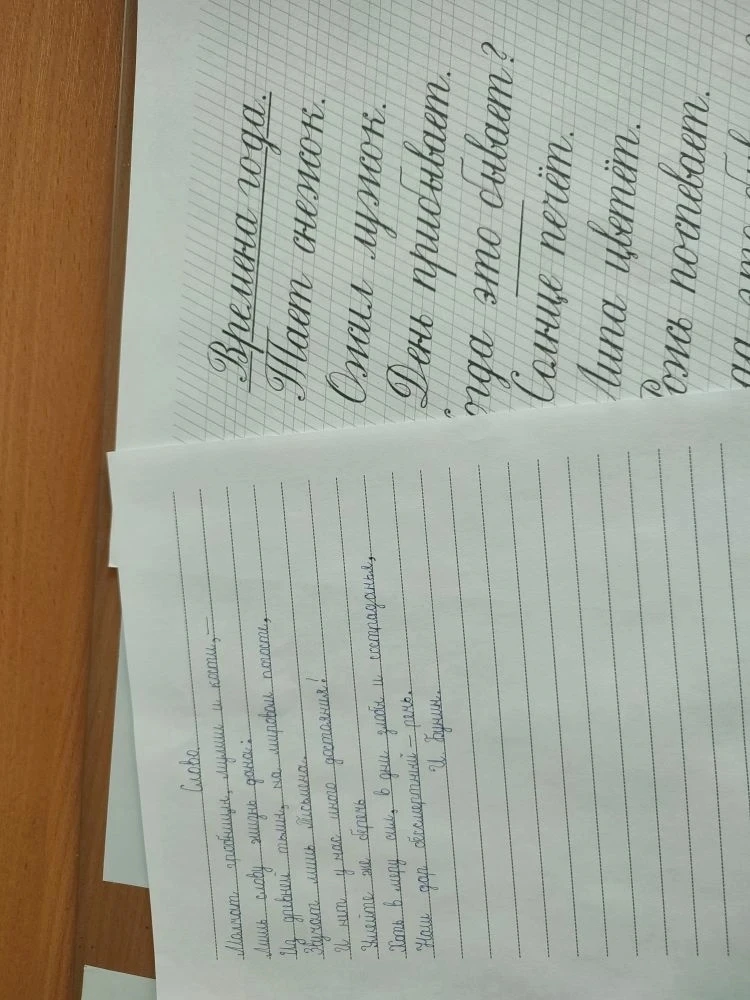 Слово
Молчат гробницы, мумии и кости, –
Лишь слову жизнь дана:
Из древней тьмы, на мировом погосте,
Звучат лишь Письмена.
И нет у нас иного достояния!
Умейте же беречь
Хоть в меру сил, в дни злобы и состраданья,
Наш дар бессмертный – речь.
И Бунин.
Времена года.
Тает снежок.
Ожил лужок.
День прибывает.
огда это бывает?
Солнце печёт.
Липа цветёт.
Рожь поспевает.